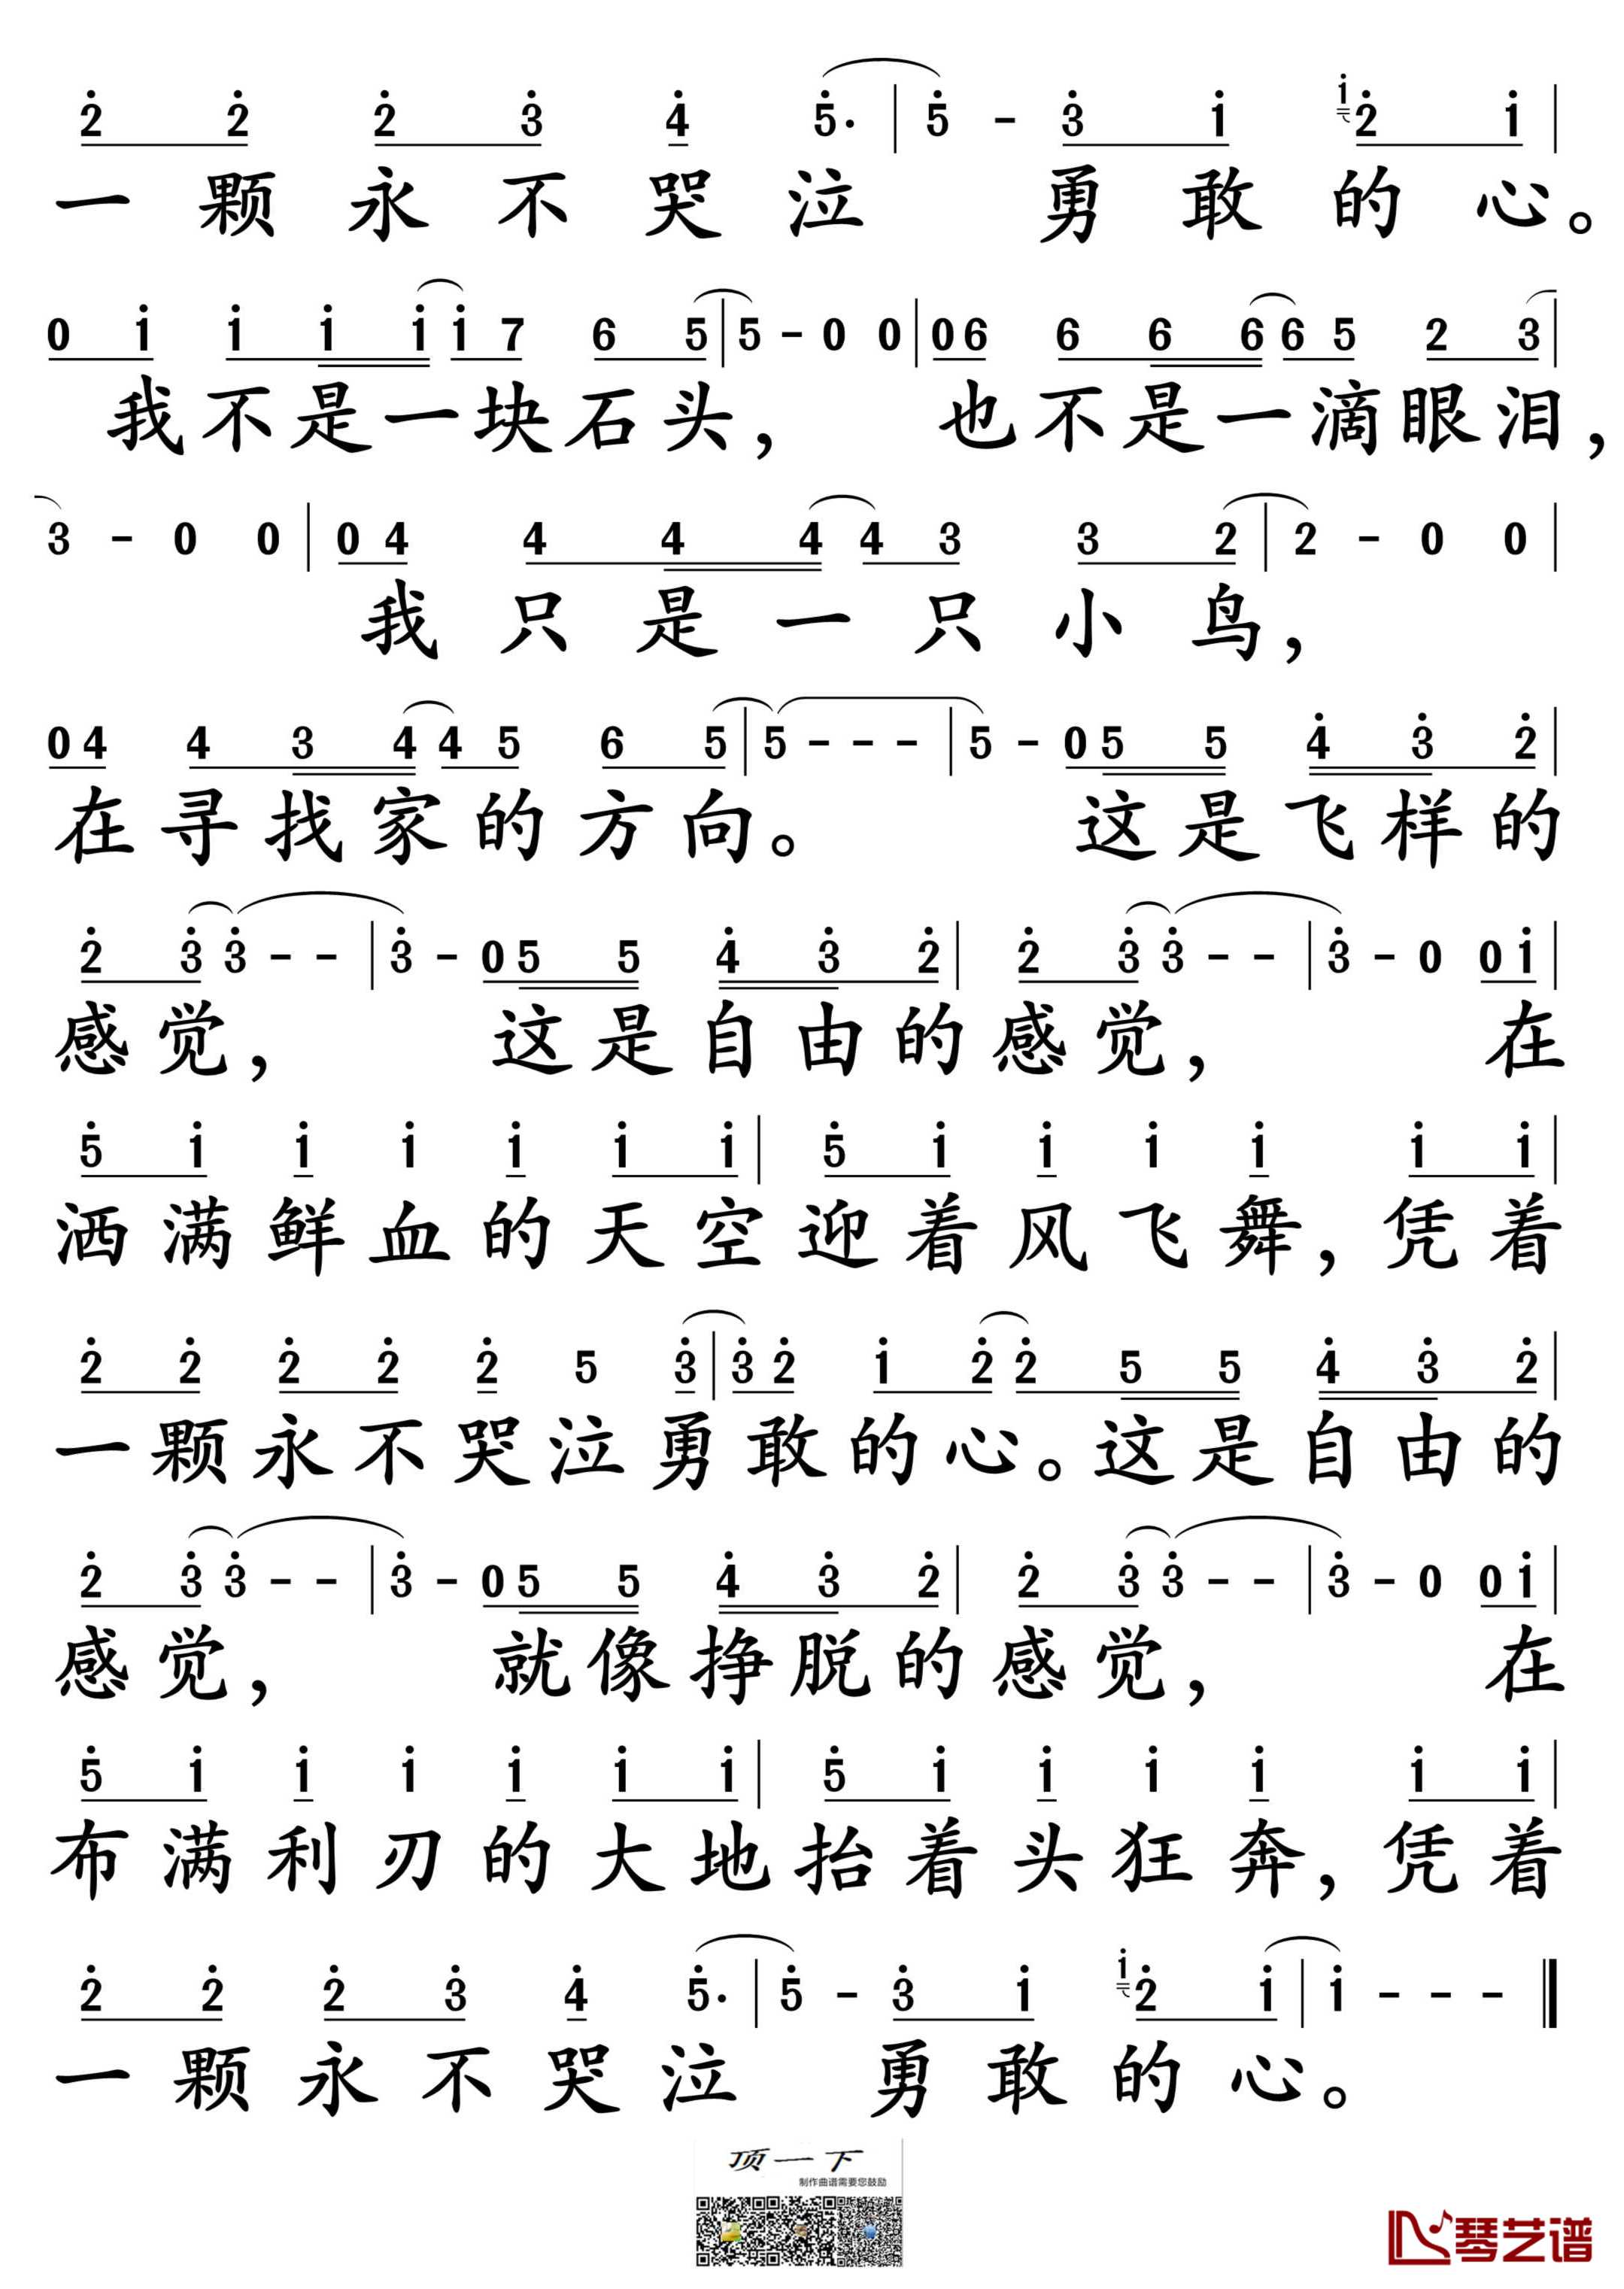 2 2 2 3 4 5. | 5 - 3 1 1 2 1 |
一颗永不哭泣 勇敢的心。
0 1 1 1 1 1 7 6 5 | 5 - 0 0 | 0 6 6 6 6 6 5 2 3 |
我不是一块石头， 也不是一滴眼泪，
3 - 0 0 | 0 4 4 4 4 4 3 3 2 | 2 - 0 0 |
我只是一只小鸟，
0 4 4 3 4 4 5 6 5 | 5 - - - | 5 - 0 5 5 4 3 2 |
在寻找家的方向。 这是飞样的
2 3 3 - - | 3 - 0 5 5 4 3 2 | 2 3 3 - - | 3 - 0 0 1 |
感觉， 这是自由的感觉， 在
5 1 1 1 1 1 1 | 5 1 1 1 1 1 1 |
洒满鲜血的天空迎着风飞舞，凭着
2 2 2 2 2 5 3 | 3 2 1 2 2 5 5 4 3 2 |
一颗永不哭泣勇敢的心。这是自由的
2 3 3 - - | 3 - 0 5 5 4 3 2 | 2 3 3 - - | 3 - 0 0 1 |
感觉， 就像挣脱的感觉， 在
5 1 1 1 1 1 1 | 5 1 1 1 1 1 1 |
布满利刃的大地抬着头狂奔，凭着
2 2 2 3 4 5. | 5 - 3 1 1 2 1 | 1 - - - ‖
一颗永不哭泣 勇敢的心。
顶一下
制作曲谱需要您鼓励
琴艺谱